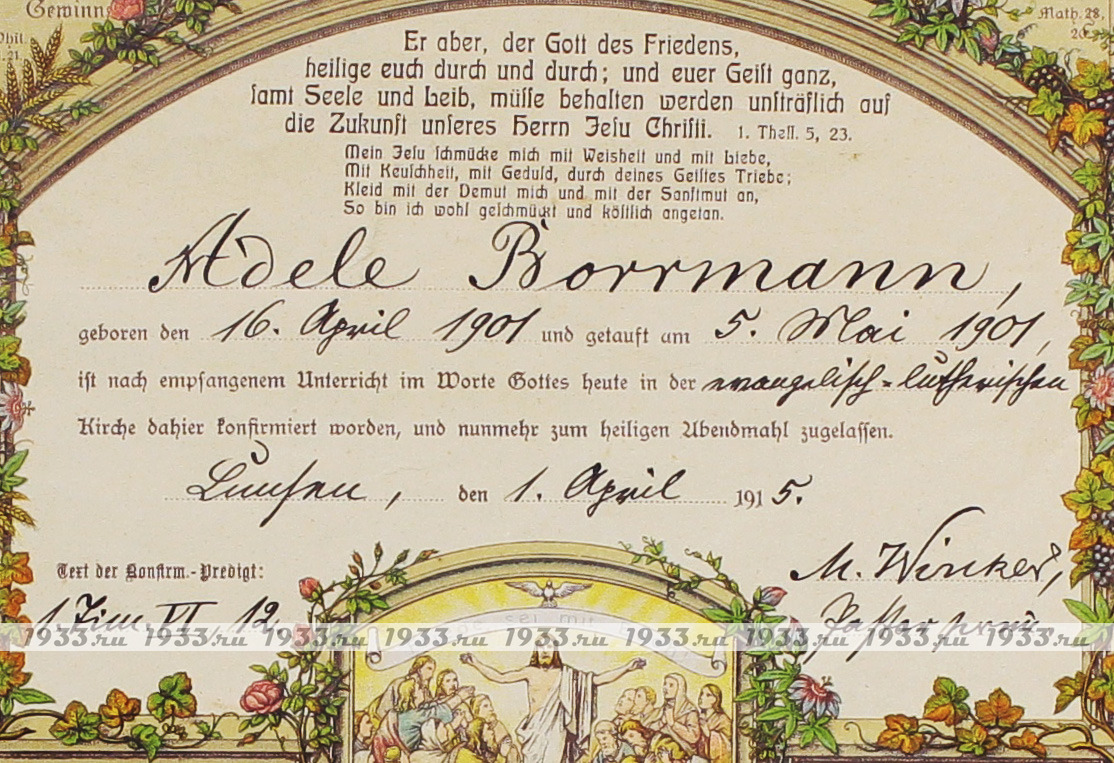 Gewinn
Phil.
1.21.
Math. 28,
20.
Er aber, der Gott des Friedens,
heilige euch durch und durch; und euer Geist ganz,
samt Seele und Leib, müsse behalten werden unsträflich auf
die Zukunft unseres Herrn Jesu Christi. 1. Thess. 5, 23.
Mein Jesu schmücke mich mit Weisheit und mit Liebe,
Mit Keuschheit, mit Geduld, durch deines Geistes Triebe;
Kleid mit der Demut mich und mit der Sanftmut an,
So bin ich wohl geschmückt und köstlich angetan.
Adele Borrmann,
geboren den 16. April 1901 und getauft am 5. Mai 1901,
ist nach empfangenem Unterricht im Worte Gottes heute in der evangelisch-lutherischen
Kirche dahier konfirmiert worden, und nunmehr zum heiligen Abendmahl zugelassen.
den 1. April 1915.
Text der Konfirm.-Predigt:
M. Winkler,
1 Tim VI 12
sei mit
1933.ru 1933.ru 1933.ru 1933.ru 1933.ru 1933.ru 1933.ru 1933.ru 1933.ru